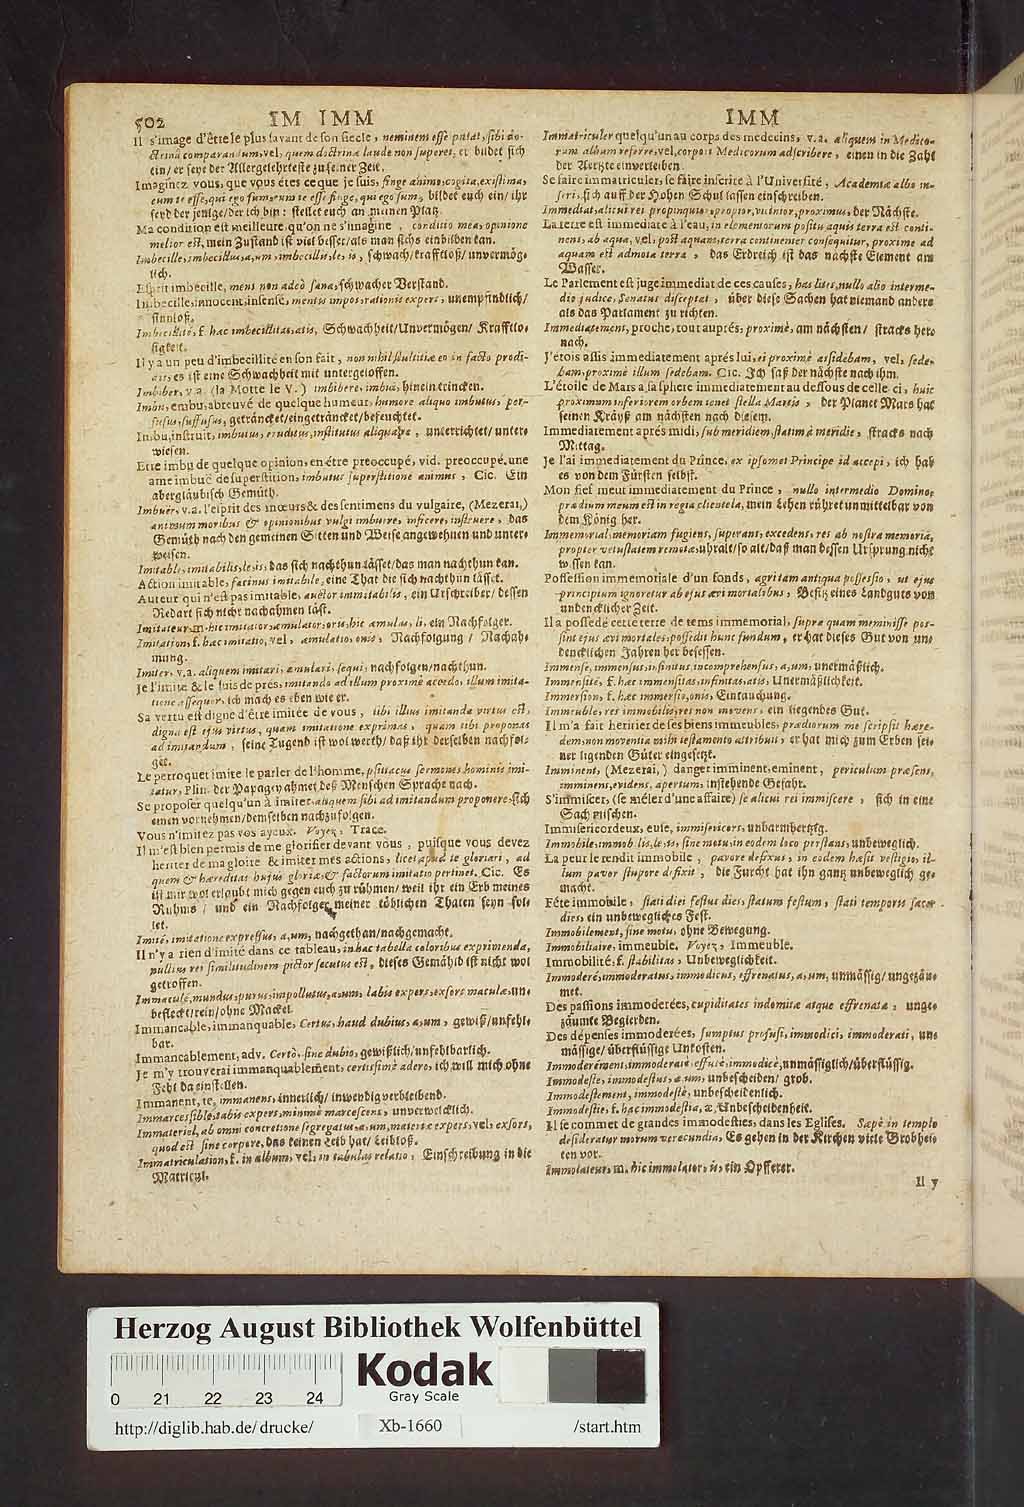 502 IM IMM
Il s'image d'être le plus savant de son siecle, neminem esse putat, sibi do-
ctrinâ comparandum, vel, quem doctrinæ laude non superet, er bildet sich
ein/ er seye der Allergelehrteste zu seiner Zeit.
Imaginez vous, que vous êtes ce que je suis, finge animo, cogita, existima,
eum te esse, qui ego sum, eum te esse finge, qui ego sum, bildet euch ein/ ihr
seyd der jenige/ der ich bin: stellet euch an meinen Platz.
Ma condition est meilleure qu'on ne s'imagine, conditio mea, opinione
melior est, mein Zustand ist viel besser/ als man sichs einbilden kan.
Imbecille, imbecillus, a, um, imbecillis, le, is, schwach/ krafftloß/ unvermög-
lich.
Esprit imbecille, mens non adeò sana, schwacher Verstand.
Imbecille, innocent, insensé, mentis impos, rationis expers, unempfindlich/
sinnloß.
Imbecillité, f. hæc imbecillitas, atis, Schwachheit/ Unvermögen/ Krafftlo-
sigkeit.
Il y a un peu d'imbecillité en son fait, non nihil stultitiæ eo in facto prodi-
tur, es ist eine Schwachheit mit untergeloffen.
Imbiber, v.a. (la Motte le V.) imbibere, imbui, hinein trincken.
Imbu, embu, abreuvé de quelque humeur, humore aliquo imbutus, per-
fusus, suffusus, geträncket/ eingeträncket/ befeuchtet.
Imbu, instruit, imbutus, eruditus, institutus aliqua re, unterrichtet/ unter-
wiesen.
Etre imbu de quelque opinion, en être preoccupé, vid. preoccupé. une
ame imbuë de superstition, imbutus superstitione animus, Cic. Ein
abergläubisch Gemüth.
Imbuer, v.a. l'esprit des mœurs & des sentimens du vulgaire, (Mezerai,)
animum moribus & opinionibus vulgi imbuere, inficere, instruere, das
Gemüth nach den gemeinen Sitten und Weise angewehnen und unter-
weisen.
Imitable, imitabilis, le, is, das sich nachthun lässet/ das man nachthun kan.
Action imitable, facinus imitabile, eine That die sich nachthun lässet.
Auteur qui n'est pas imitable, auctor inimitabilis, ein Urschreiber/ dessen
Redart sich nicht nachahmen läst.
Imitateur, m. hic imitator, æmulator, oris, hic æmulus, li, ein Nachfolger.
Imitation, f. hæc imitatio, vel, æmulatio, onis, Nachfolgung/ Nachah-
mung.
Imiter, v.a. aliquem imitari, æmulari, sequi, nachfolgen/ nachthun.
Je l'imite & le suis de prés, imitando ad illum proximè accedo, illum imita-
tione assequor, ich mach es eben wie er.
Sa vertu est digne d'être imitée de vous, tibi illius imitanda virtus est,
digna est ejus virtus, quam imitatione exprimas, quam tibi proponas
ad imitandum, seine Tugend ist wol werth/ daß ihr derselben nachfol-
get.
Le perroquet imite le parler de l'homme, psittacus sermones hominis imi-
tatur, Plin. der Papagey ahmet deß Menschen Sprache nach.
Se proposer quelqu'un à imiter, aliquem sibi ad imitandum proponere, sich
einen vornehmen/ demselben nachzufolgen.
Vous n'imitez pas vos ayeux. Voyez, Trace.
Il m'est bien permis de me glorifier devant vous, puisque vous devez
heriter de ma gloire & imiter mes actions, licet apud te gloriari, ad
quem & hæreditas hujus gloriæ, & factorum imitatio pertinet, Cic. Es
ist mir wol erlaubt mich gegen euch zu rühmen/ weil ihr ein Erb meines
Ruhms/ und ein Nachfolger meiner löblichen Thaten seyn sol-
let.
Imité, imitatione expressus, a, um, nachgethan/ nachgemacht.
Il n'y a rien d'imité dans ce tableau, in hac tabella coloribus exprimenda,
nullius rei similitudinem pictor secutus est, dieses Gemähld ist nicht wol
getroffen.
Immaculé, mundus, purus, impollutus, a, um, labis expers, exsors maculæ, un-
befleckt/ rein/ ohne Mackel.
Immancable, immanquable, Certus, haud dubius, a, um, gewiß/ unfehl-
bar.
Immancablement, adv. Certò, sine dubio, gewißlich/ unfehlbarlich.
Je m'y trouverai immanquablement, certissimè adero, ich will mich ohne
Fehl da einstellen.
Immanent, te, immanens, innerlich/ inwendig verbleibend.
Immarcessible, tabis expers, minimè marcescens, unverwelcklich.
Immateriel, ab omni concretione segregatus, a, um, materiæ expers, vel, exsors,
quod est sine corpore, das keinen Leib hat/ Leibloß.
Immatriculation, f. in album, vel, in tabulas relatio, Einschreibung in die
Matricul.
IMM
Immatriculer quelqu'un au corps des medecins, v.a. aliquem in Medico-
rum album referre, vel, corpori Medicorum adscribere, einen in die Zahl
der Aertzte einverleiben.
Se faire immatriculer, se faire inscrire à l'Université, Academiæ albo in-
seri, sich auff der Hohen Schul lassen einschreiben.
Immediat, alicui rei propinquus, propior, vicinior, proximus, der Nächste.
La terre est immediate à l'eau, in elementorum positu aquis terra est conti-
nens, ab aqua, vel, post aquam, terra continenter consequitur, proxime ad
aquam est admota terra, das Erdreich ist das nächste Element am
Wasser.
Le Parlement est juge immediat de ces causes, has lites, nullo alio interme-
dio judice, Senatus disceptat, über diese Sachen hat niemand anders
als das Parlament zu richten.
Immediatement, proche, tout auprés, proximè, am nächsten/ stracks her-
nach.
J'étois assis immediatement aprés lui, ei proximè assidebam, vel, sede-
bam, proximè illum sedebam. Cic. Ich saß der nächste nach ihm.
L'étoile de Mars a sa sphere immediatement au dessous de celle ci, huic
proximum inferiorem orbem tenet stella Martis, der Planet Mars hat
seinen Kräyß am nächsten nach diesem.
Immediatement aprés midi, sub meridiem, statim à meridie, stracks nach
Mittag.
Je l'ai immediatement du Prince, ex ipsomet Principe id accepi, ich hab
es von dem Fürsten selbst.
Mon fief meut immediatement du Prince, nullo intermedio Domino,
prædium meum est in regia clientela, mein Lehen rühret unmittelbar von
dem König her.
Immemorial, memoriam fugiens, superans, excedens, res ab nostra memoria,
propter vetustatem remota, uhralt/ so alt/ daß man dessen Ursprung nicht
wissen kan.
Possession immemoriale d'un fonds, agri tam antiqua possessio, ut ejus
principium ignoretur ab ejus ævi mortalibus, Besitz eines Landguts von
undencklicher Zeit.
Il a possedé cette terre de tems immemorial, supra quam meminisse pos-
sint ejus ævi mortales, possedit hunc fundum, er hat dieses Gut von un-
dencklichen Jahren her besessen.
Immense, immensus, infinitus, incomprehensus, a, um, unermäßlich.
Immensité, f. hæc immensitas, infinitas, atis, Unermäßlichkeit.
Immersion, f. hæc immersio, onis, Eintauchung.
Immeuble, res immobilis, res non movens, ein liegendes Gut.
Il m'a fait heritier de ses biens immeubles, prædiorum me scripsit hære-
dem, non moventia mihi testamento attribuit, er hat mich zum Erben sei-
ner ligenden Güter eingesetzt.
Imminent, (Mezerai,) danger imminent, eminent, periculum præsens,
imminens, evidens, apertum, instehende Gefahr.
S'immiscer, (se mêler d'une affaire) se alicui rei immiscere, sich in eine
Sach mischen.
Immisericordeux, euse, immisericors, unbarmhertzig.
Immobile, immobilis, le, is, sine motu, in eodem loco perstans, unbeweglich.
La peur le rendit immobile, pavore defixus, in eodem hæsit vestigio, il-
lum pavor stupore defixit, die Furcht hat ihn gantz unbeweglich ge-
macht.
Fête immobile, stati diei festus dies, statum festum, stati temporis sacer
dies, ein unbewegliches Fest.
Immobilement, sine motu, ohne Bewegung.
Immobiliaire, immeuble. Voyez, Immeuble.
Immobilité, f. stabilitas, Unbeweglichkeit.
Immoderé, immoderatus, immodicus, effrenatus, a, um, unmässig/ ungezäu-
met.
Des passions immoderées, cupiditates indomitæ atque effrenatæ, unge-
zäumte Begierden.
Des dépenses immoderées, sumptus profusi, immodici, immoderati, un-
mässige/ überflüssige Unkosten.
Immoderément, immoderatè, effusè, immodicè, unmässiglich/ überflüssig.
Immodeste, immodestus, a, um, unbescheiden/ grob.
Immodestement, immodestè, unbescheidenlich.
Immodestie, f. hæc immodestia, æ, Unbescheidenheit.
Il se commet de grandes immodesties, dans les Eglises. Sæpè in templo
desideratur morum verecundia, Es gehen in der Kirchen viele Grobhei-
ten vor.
Immolateur, m. hic immolator, ein Opfferer.
Il y
Herzog August Bibliothek Wolfenbüttel
0 21 22 23 24
Kodak
Gray Scale
http://diglib.hab.de/drucke/ Xb-1660 /start.htm